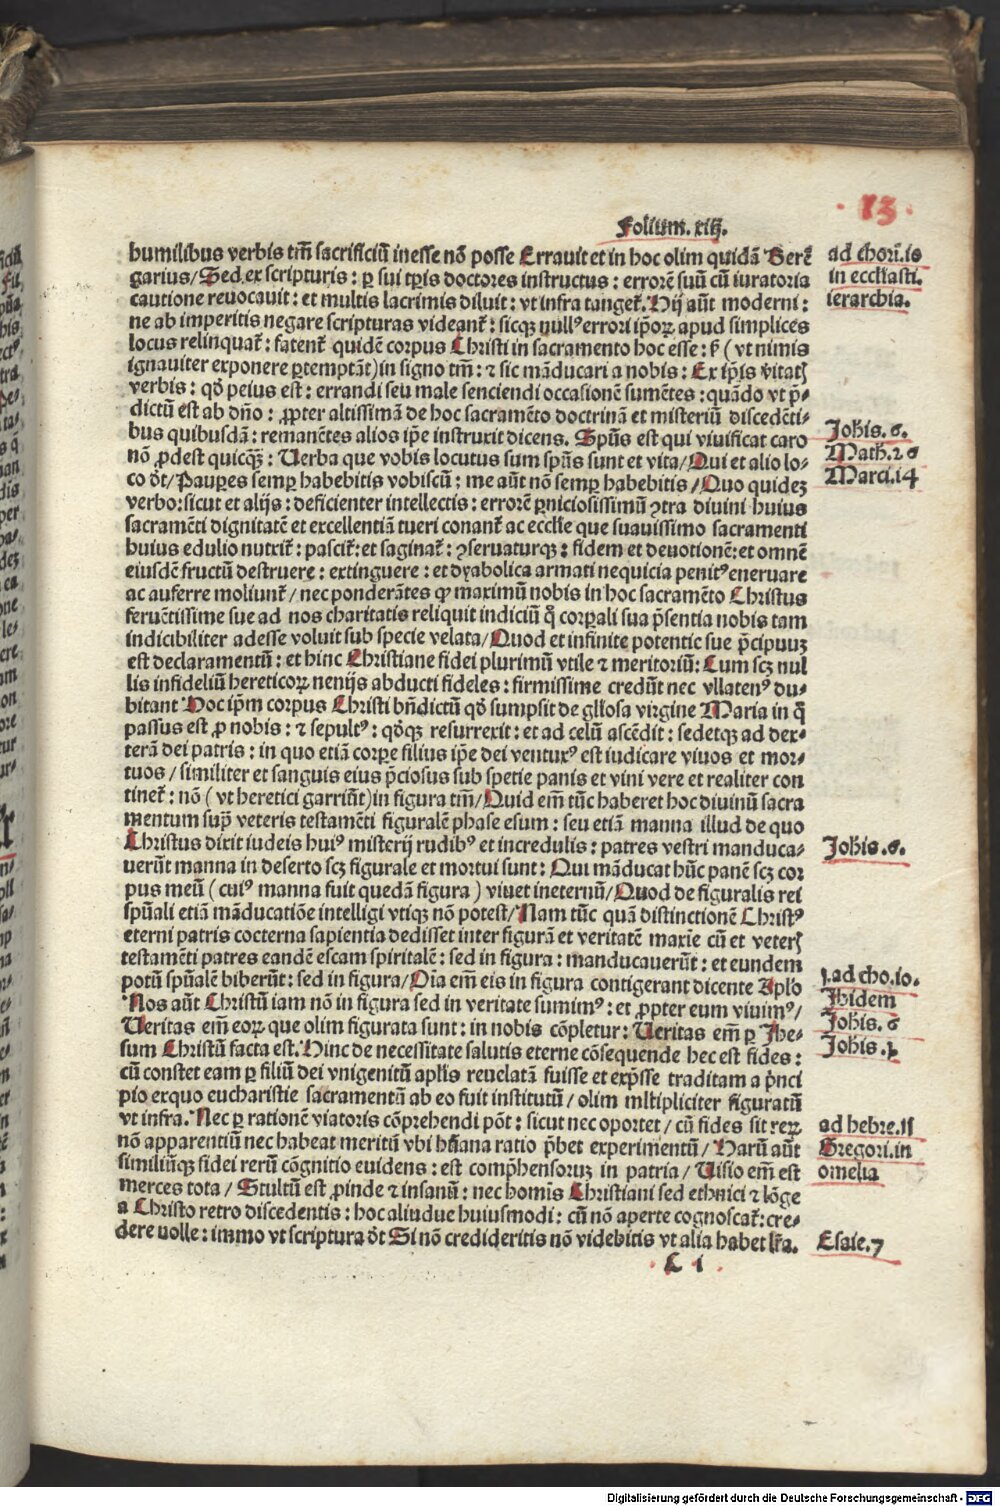 13
Folium. xiij.
humilibus verbis tm̃ sacrificiũ inesse nõ posse Errauit et in hoc olim quidã Berẽ
garius/Sed ex scripturis: ꝑ sui tꝑis doctores instructus: errorẽ suũ cũ iuratoria
cautione reuocauit: et multis lacrimis diluit: vt infra tanget᷑. Hij aũt moderni:
ne ab imperitis negare scripturas videant᷑: sicqꝫ nullꝰ errori ip̃oꝝ apud simplices
locus relinquat᷑: fatent᷑ quidẽ corpus Christi in sacramento hoc esse: ẜ (vt nimis
ignauiter exponere ꝑtemptãt) in signo tm̃: ⁊ sic mãducari a nobis: Ex ip̃is v̾itatꝭ
verbis: qđ peius est: errandi seu male senciendi occasionẽ sumẽtes: quãdo vt p̃-
dictũ est ab dño: ꝓpter altissimã de hoc sacramẽto doctrinã et misteriũ discedẽti-
bus quibusdã: remanẽtes alios ip̃e instruxit dicens. Spũs est qui viuificat caro
nõ ꝓdest quicqꝫ: Uerba que vobis locutus sum spũs sunt et vita/Qui et alio lo-
co dt̃/Pauꝑes semꝑ habebitis vobiscũ: me aũt nõ semꝑ habebitis/Quo quideꝫ
verbo: sicut et alijs: deficienter intellectis: errorẽ ꝑniciosissimũ ꝯtra diuini huius
sacramẽti dignitatẽ et excellentiã tueri conant᷑ ac ecclie que suauissimo sacramenti
huius edulio nutrit᷑: pascit᷑: et saginat᷑: ꝯseruaturqꝫ: fidem et deuotionẽ: et omnẽ
eiusdẽ fructũ destruere: extinguere: et dyabolica armati nequicia penitꝰ eneruare
ac auferre moliunt᷑/nec ponderãtes ꝙ maximũ nobis in hoc sacramẽto Christus
feruẽtissime sue ad nos charitatis reliquit indiciũ q̃ corꝑali sua p̃sentia nobis tam
indicibiliter adesse voluit sub specie velata/Quod et infinite potentie sue p̃cipuuꝫ
est declaramentũ: et hinc Christiane fidei plurimũ vtile ⁊ meritoriũ: Cum scꝫ nul
lis infideliũ hereticoꝝ nenijs abducti fideles: firmissime credũt nec vllatenꝰ du-
bitant Hoc ip̃m corpus Christi bñdictũ qđ sumpsit de gl̃iosa virgine Maria in q̃
passus est ꝓ nobis: ⁊ sepultꝰ: qđqꝫ resurrexit: et ad celũ ascẽdit: sedetqꝫ ad dex-
terã dei patris: in quo etiã corꝑe filius ip̃e dei venturꝰ est iudicare viuos et mor-
tuos/similiter et sanguis eius p̃ciosus sub spetie panis et vini vere et realiter con
tinet᷑: nõ (vt heretici garriũt) in figura tm̃/Quid em̃ tũc haberet hoc diuinũ sacra
mentum suꝑ veteris testamẽti figuralẽ phase esum: seu etiã manna illud de quo
Christus dixit iudeis huiꝰ misterij rudibꝰ et incredulis: patres vestri manduca-
uerũt manna in deserto scꝫ figurale et mortui sunt: Qui mãducat hũc panẽ scꝫ cor
pus meũ (cuiꝰ manna fuit quedã figura) viuet ineternũ/Quod de figuralis rei
spũali etiã mãducatiõe intelligi vtiqꝫ nõ potest/Nam tũc quã distinctionẽ Christꝰ
eterni patris cocterna sapientia dedisset inter figurã et veritatẽ maxĩe cũ et veterꝭ
testamẽti patres eandẽ escam spiritalẽ: sed in figura: manducauerũt: et eundem
potũ spũalẽ biberũt: sed in figura/Oĩa em̃ eis in figura contigerant dicente Ap̃lo
Nos aũt Christũ iam nõ in figura sed in veritate sumimꝰ: et ꝓpter eum viuimꝰ/
Ueritas em̃ eoꝝ que olim figurata sunt: in nobis cõpletur: Ueritas em̃ ꝑ Ihe-
sum Christũ facta est. Hinc de necessitate salutis eterne cõsequende hec est fides:
cũ constet eam ꝑ filiũ dei vnigenitũ apl̃is reuelatã fuisse et exp̃sse traditam a p̃nci
pio exquo eucharistie sacramentũ ab eo fuit institutũ/olim ml̃tipliciter figuratũ
vt infra. Nec ꝑ rationẽ viatoris cõprehendi põt: sicut nec oportet/cũ fides sit reꝝ
nõ apparentiũ nec habeat meritũ vbi hũana ratio p̃bet experimentũ/Harũ aũt
similiũqꝫ fidei rerũ cõgnitio euidens: est comp̃hensoruꝫ in patria/Uisio em̃ est
merces tota/Stultũ est ꝓinde ⁊ insanũ: nec homĩs Christiani sed ethnici ⁊ lõge
a Christo retro discedentis: hoc aliudue huiusmodi: cũ nõ aperte cognoscat᷑: cre-
dere uolle: immo vt scriptura dt̃ Si nõ credideritis nõ videbitis vt alia habet lr̃a.
C i
ad chori. is
in eccliasti.
ierarchia.
Johis. 6.
Math. 26
Marci. 14
Johis. 6.
1. ad cho. 10.
Ibidem
Johis. 6
Johis. 1.
ad hebre. 11
Gregori. in
omelia
Esaie. 7
Digitalisierung gefördert durch die Deutsche Forschungsgemeinschaft - DFG